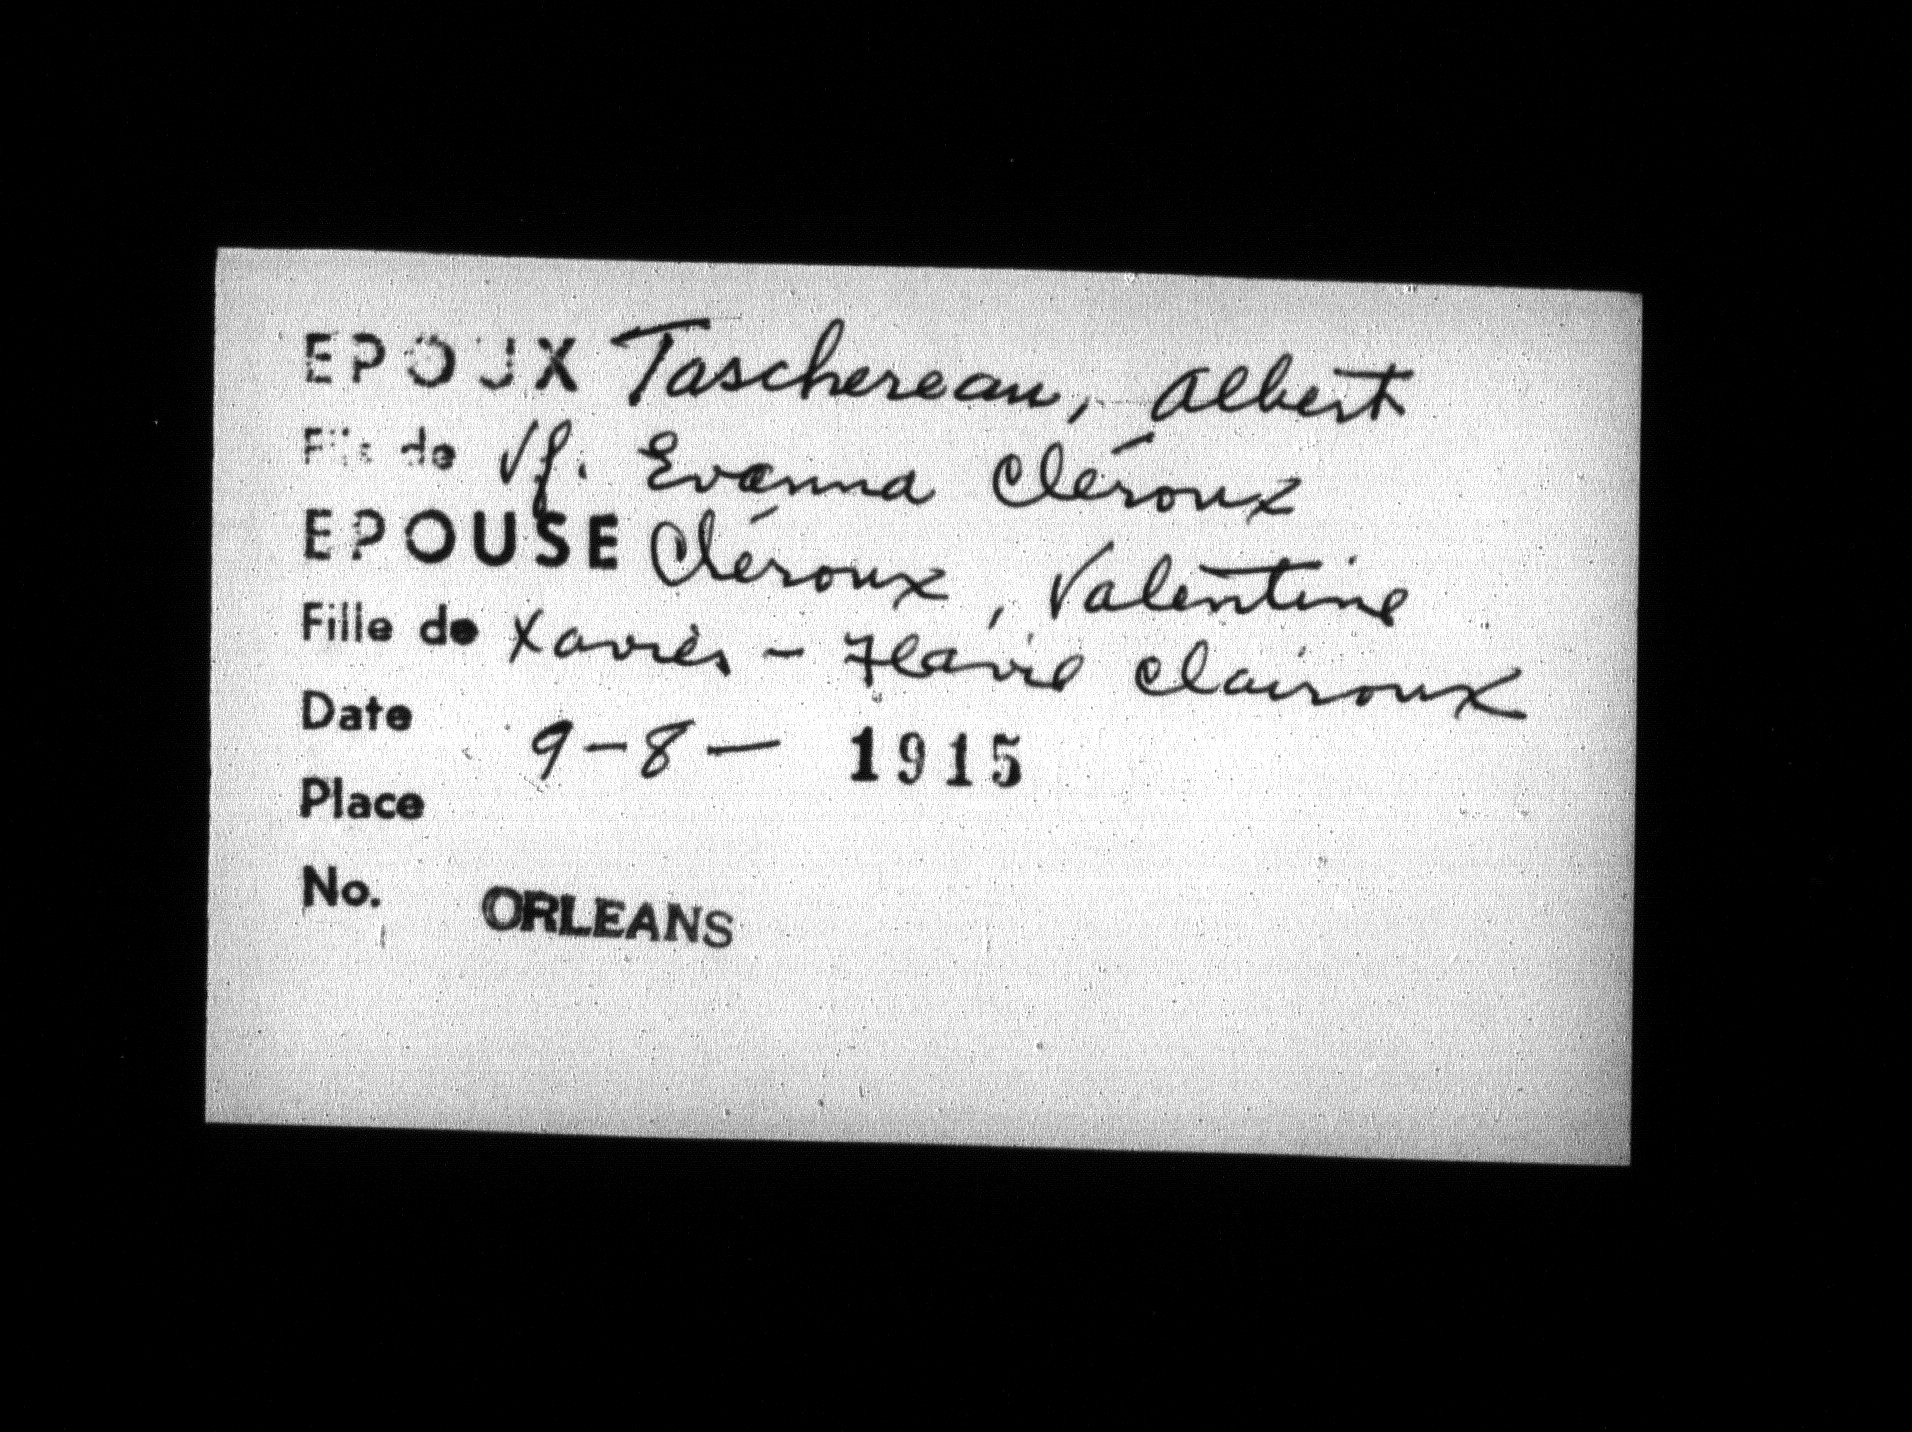 EPOUX Taschereau, Albert
Fils de Vf. Evanna Cléroux
EPOUSE Cléroux, Valentine
Fille de Xavier - Flavie Clairoux
Date 9-8- 1915
Place
No. ORLEANS